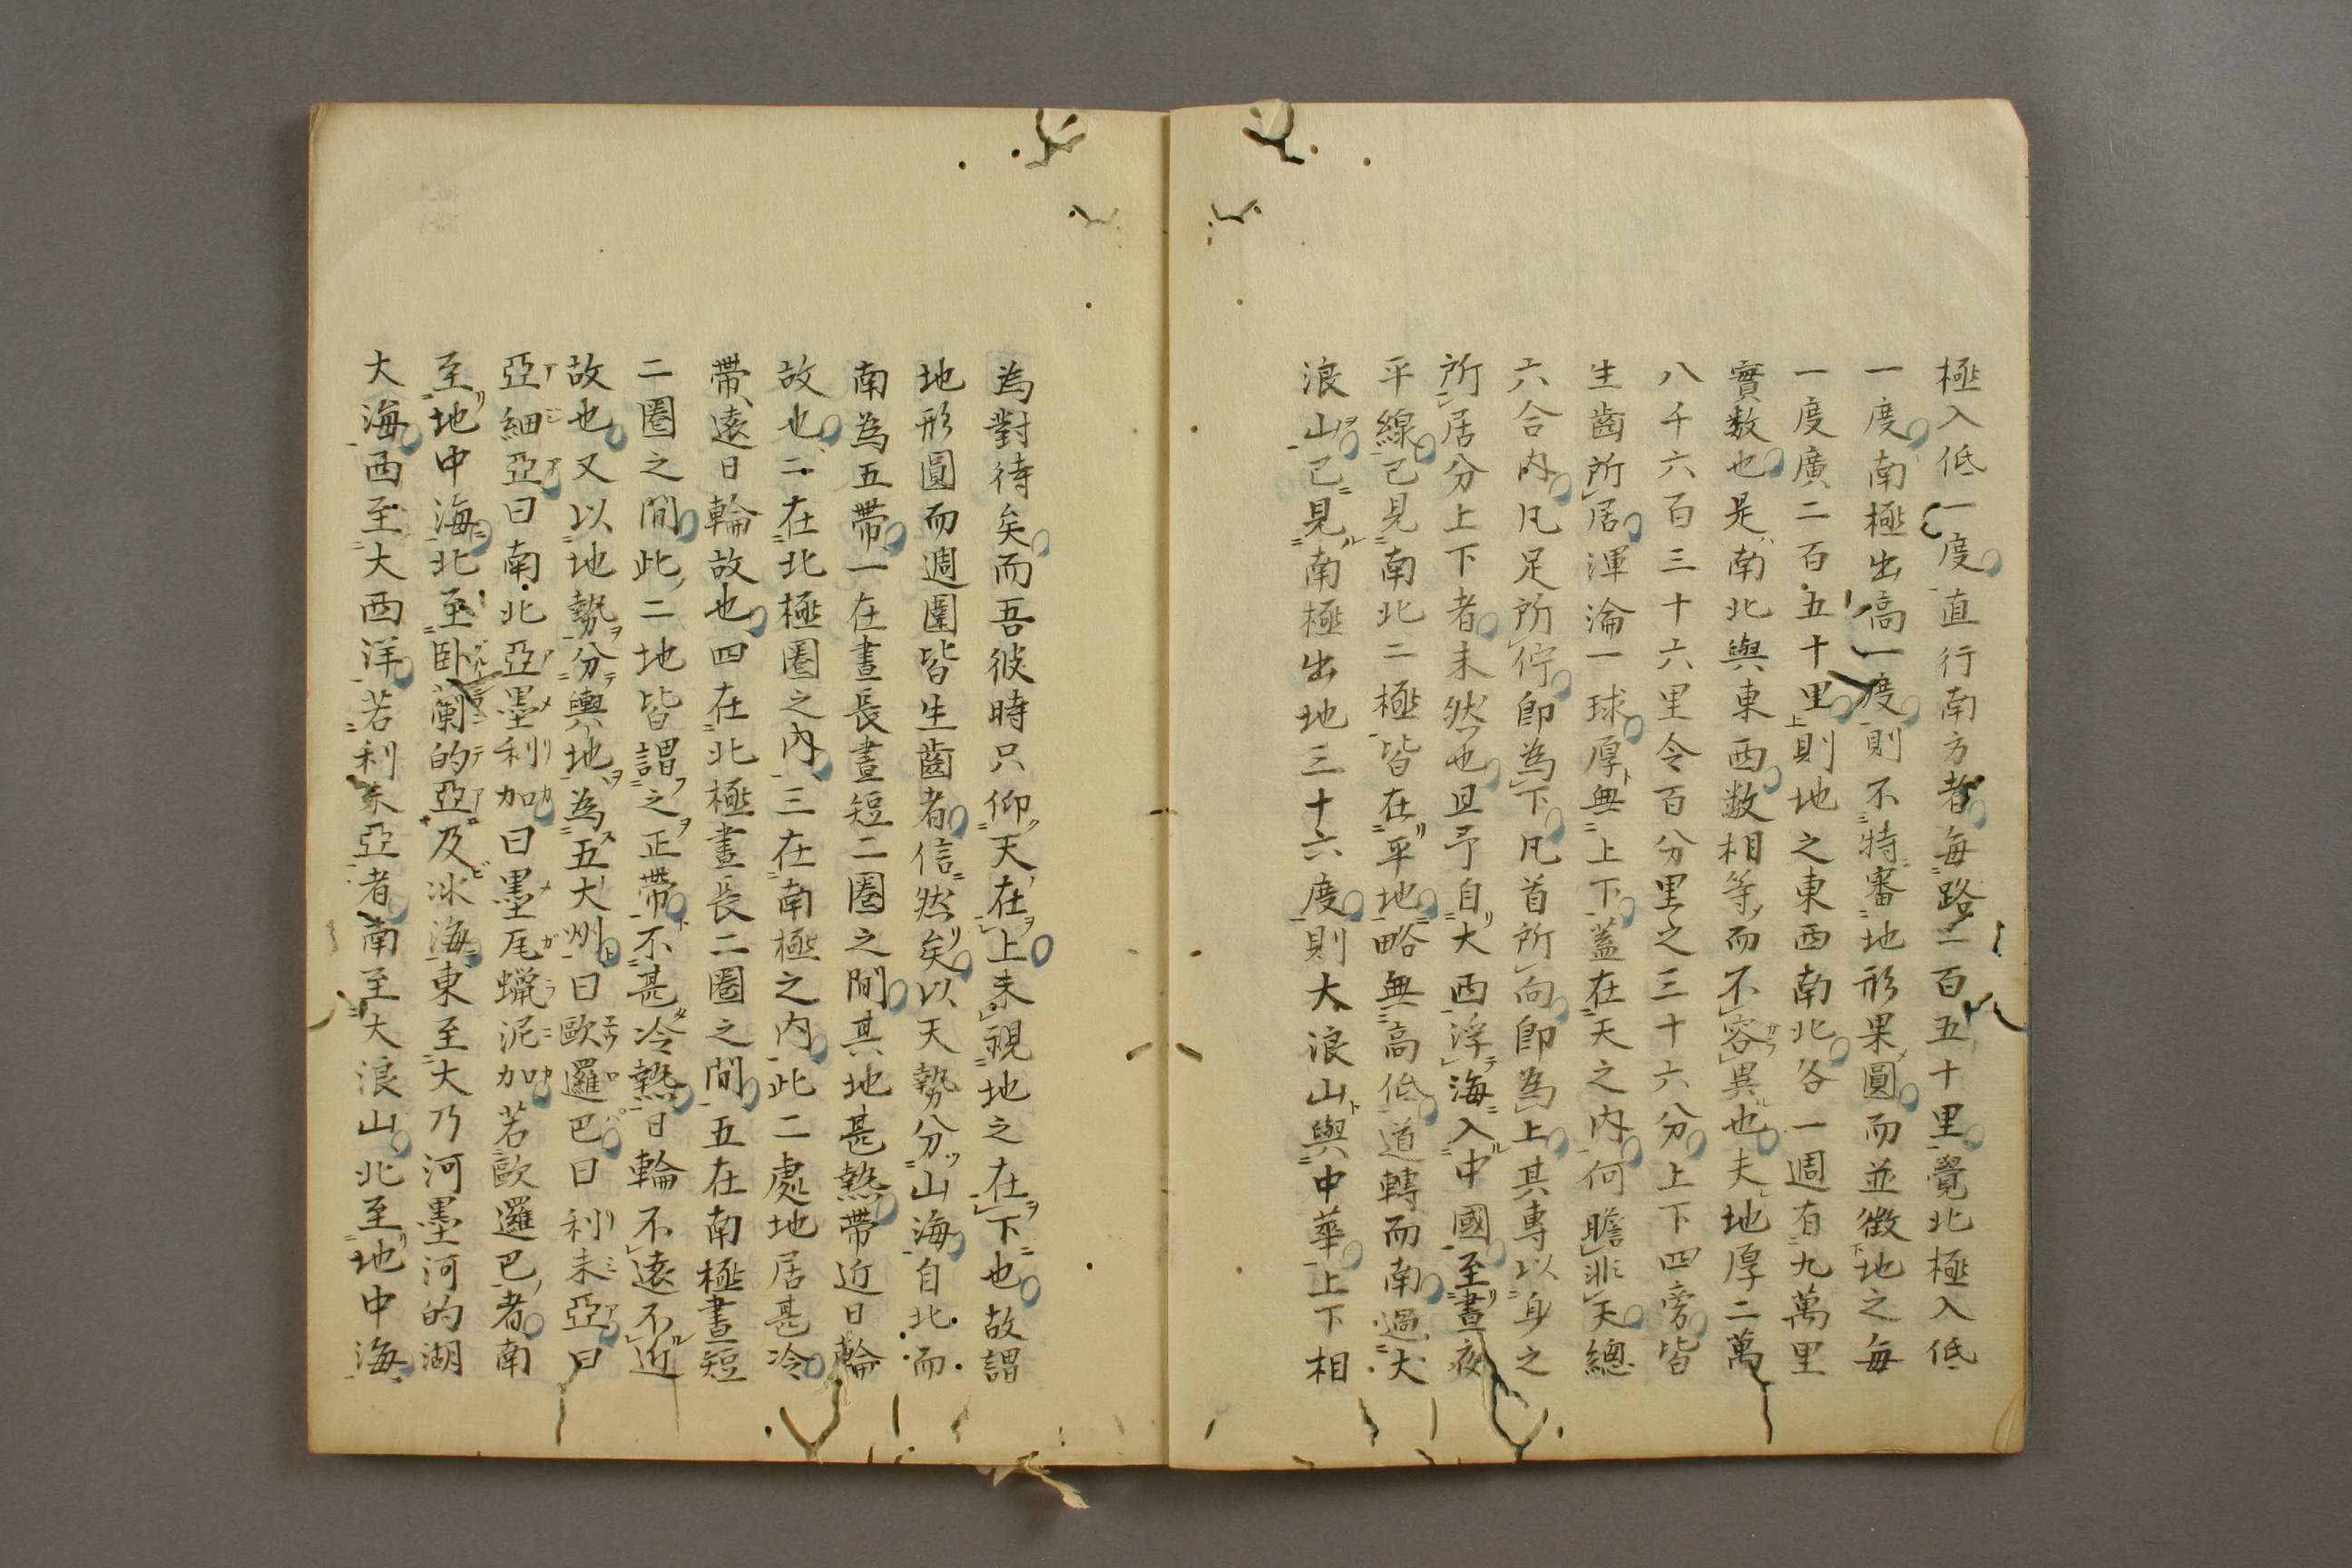 極入低一度直行南方者每路二百五十里覺北極入低
一度南極出高一度則不特審地形果圓而並徴地之每
一度廣二百五十里則地之東西南北各一週有九萬里
實数也是南北與東西数相等而不容異也夫地厚二萬
八千六百三十六里令百分里之三十六分上下四旁皆
生齒所居渾淪一球厚無上下蓋在天之内何瞻非天總
六合内凡足所佇即為下凡首所向即為上其專以身之
所居分上下者未然也且予自大西浮海入中國至晝夜
平線已見南北二極皆在平地略無高低道轉而南過大
浪山已見南極出地三十六度則大浪山與中華上下相
為對待矣而吾彼時只仰天在上未視地之在下也故謂
地形圓而週圍皆生齒者信然矣以天勢分山海自北而
南為五帶一在晝長晝短二圈之間其地甚熱帶近日輪
故也二在北極圈之内三在南極之内此二處地居甚冷
帶遠日輪故也四在北極晝長二圈之間五在南極晝短
二圈之間此二地皆謂之正帶不甚冷熱日輪不遠不近
故也又以地勢分輿地為五大州曰歐邏巴曰利未亞曰
亞細亞曰南北亞墨利加曰墨尾蠟泥加若歐邏巴者南
至地中海北至臥蘭的亞及冰海東至大乃河墨河的湖
大海西至大西洋若利未亞者南至大浪山北至地中海